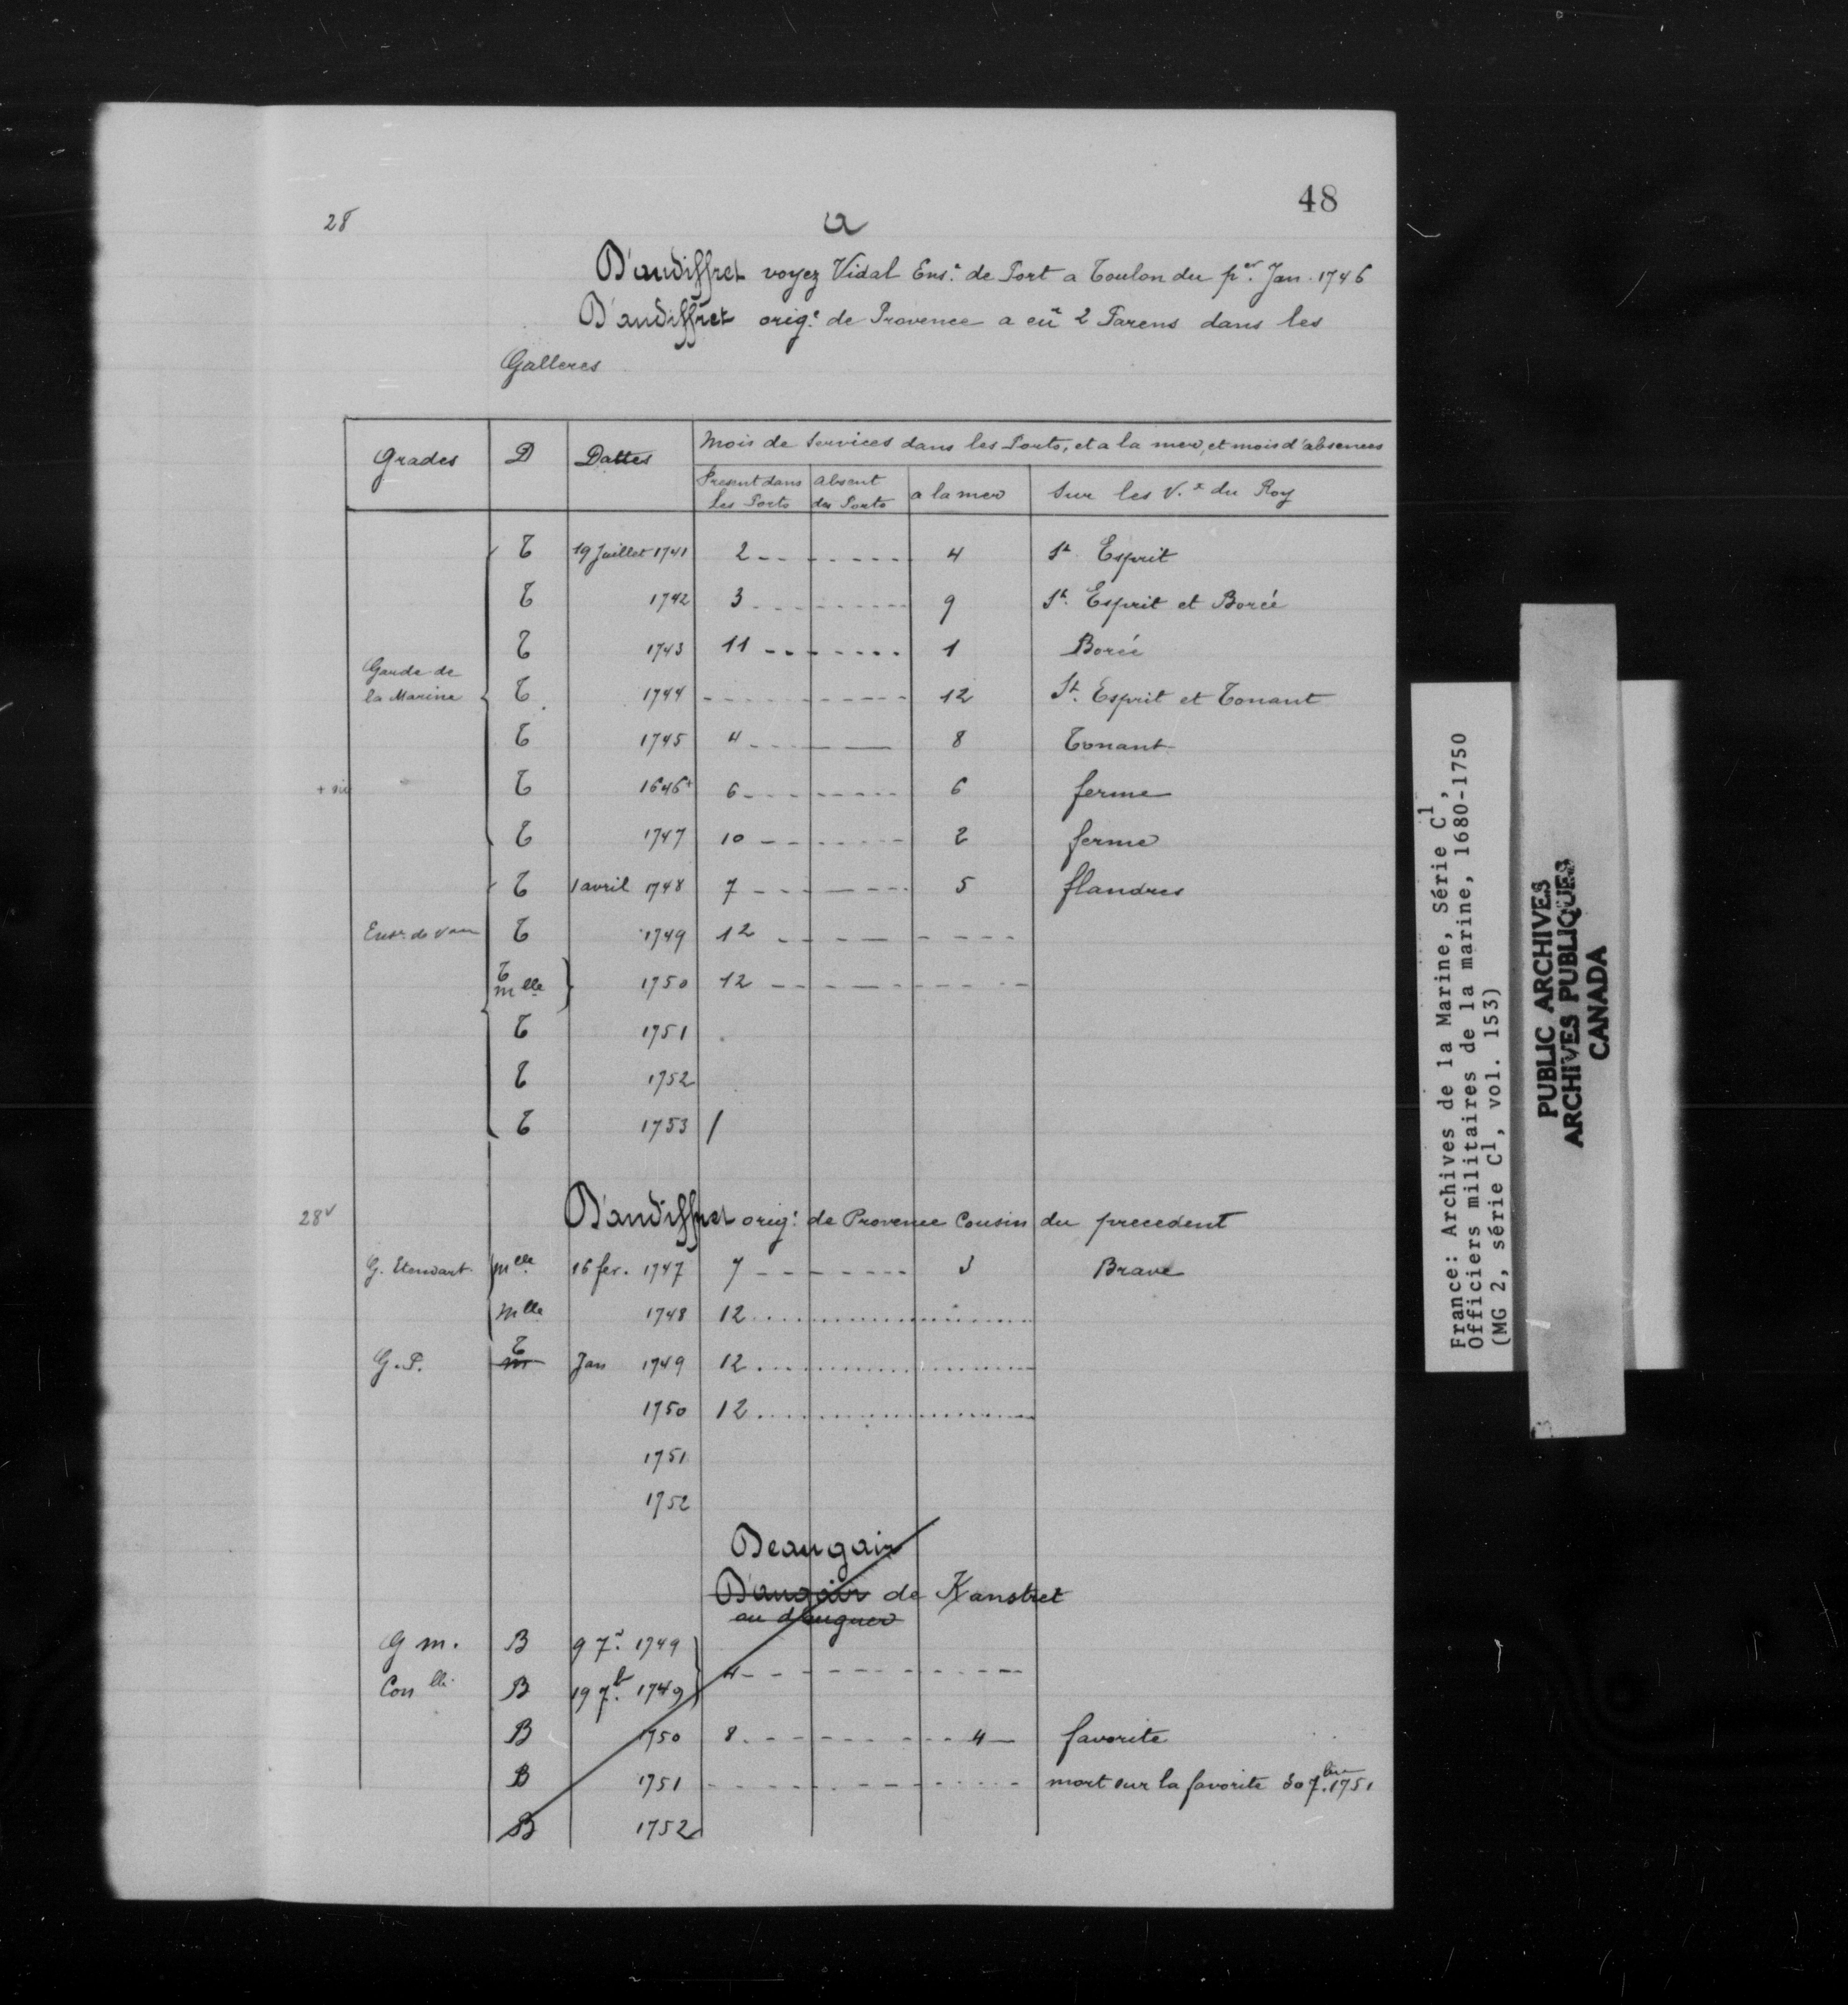 48
28
a
D'audiffret voyez Vidal Ens.e de Port a Toulon du p.er Jan. 1746
D'audiffret orig.e de Provence a eu 2 Parens dans les
Galleres
Grades D Dattes Mois de Services dans les Ports, et a la mer, et mois d'absences
Present dans les Ports absent des Ports a la mer Sur les V.x du Roy
T 19 Juillet 1741 2 - - - - - - - 4 St Esprit
T 1742 3 - - - - - - - 9 St. Esprit et Borée
T 1743 11 - - - - - - - 1 Borée
Garde de
la Marine T 1744 - - - - - - - 12 St. Esprit et Tonant
T 1745 4 - - - - - 8 Tonant
T 1646+ 6 - - - - - - - 6 ferme
T 1747 10 - - - - - - 2 ferme
T 1 avril 1748 7 - - - - - - 5 flandres
Ens.e de Vau T 1749 12 - - - - - - -
T mlle } 1750 12 - - - - - - -
T 1751
T 1752
T 1753 /
28v
D'audiffret orig.e de Provence Cousin du precedent
G. Etendart mlle 16 fev. 1747 7 - - - - - - 3 Brave
mlle 1748 12 . . . . . . . .
G. P. T m Jan 1749 12 . . . . . . . .
1750 12 . . . . . . . .
1751
1752
Deaugair
D'augair de Kanstret
G m. B 9 7.e 1749
Con lle B 19 7.b 1749 } 4 - - - - - - -
B 1750 8 - - - - - - 4 — favorite
B 1751 - - - - - - - mort sur la favorite 30 7.bre 1751
B 1752
France: Archives de la Marine, Série C1,
Officiers militaires de la marine, 1680-1750
(MG 2, série C1, vol. 153)
PUBLIC ARCHIVES
ARCHIVES PUBLIQUES
CANADA